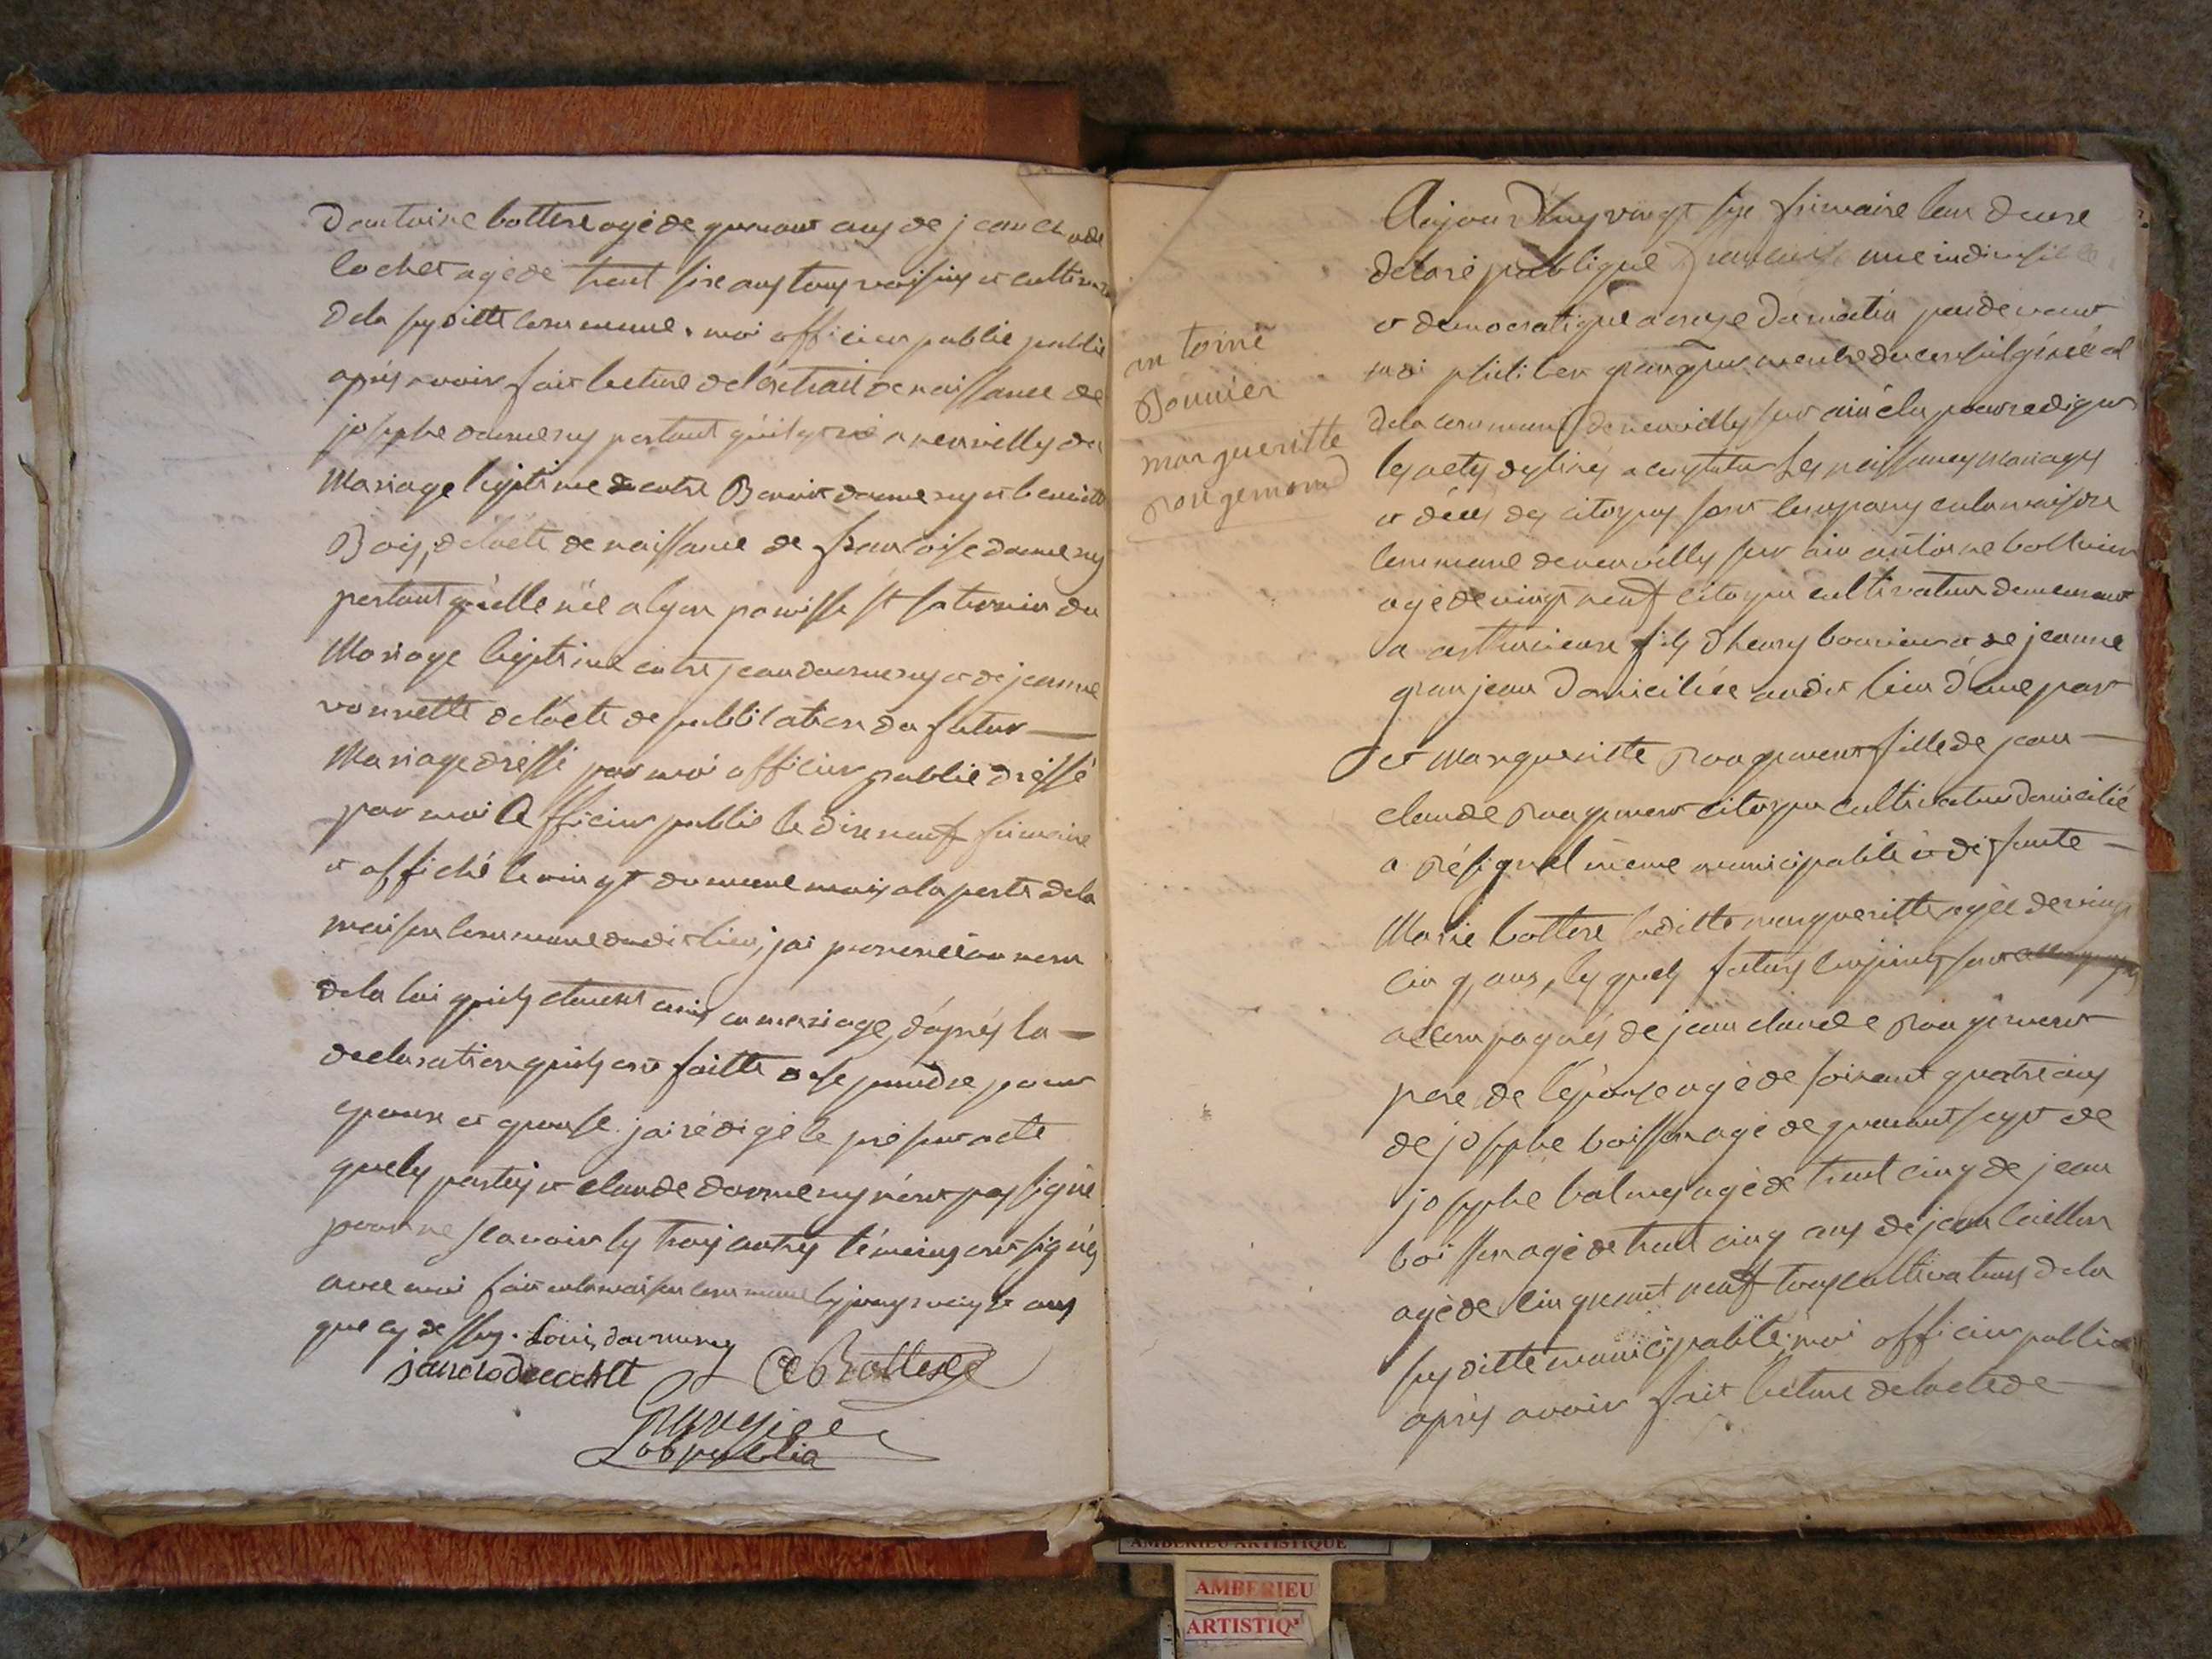 Dantoine bottere agé de quarant ans de jean claude
lochet agé de trent sixe ans tous voisins et cultivat
dela susditte commune. moi officier public public
après avoir fait lecture de léxtrait de naissance de
josephe darmeny portant qu'il est né a neuvilly du
Mariage légitime entre Benoit darmeny et benoitte
Bois, de lacte de naissance de francoise darmeny
portant quelle née a lyon paroisse st saternin du
Mariage légitime entre jean darmeny et de jeanne
vonnette de lacte de publication du futur
Mariage dressé par moi officier public dréssé
par moi Officier public le dixneuf frimaire
et affiché le vingt du meme mois a la porte dela
maison commune dudit lieu, jai prononcé au nom
dela loi quils etoient unis en mariage, daprés la
declaration quils ont faitte de se prendre pour
epoux et epouse. jai rédigé le présent acte
quels parties et claude darmeny n'ont pas signé
pour ne scavoir les trois autres témoins ont signés
avec moi fait en la maison commune les jours mois et ans
que cy dessus. Louis darmeny
Bottere
ob public
antoine
Bonnier
margueritte
rougemond
Aujourdhuy vingt sixe frimaire lan deuxe
dela république francaise une indivisible
et democratique a onze du matin pardevant
moi philiber membre du conseil général
dela commune de neuvilly sur ain élu pour rediger
les actes destinés a constater les naissances mariages
et décés des citoyens sont comparus en la maison
commune de neuvilly sur ain antoine bottnier
agé de vingt neuf citoyen cultivateur demeurant
a fils dhenry bonnier et de jeanne
granjean domiciliée audit lieu d'une part
et Margueritte Rougemont fille de jean
claude Rougemont citoyen cultivateur domicilié
a Résignel même municipalité et defunte
Marie bottere laditte margueritte agée de vingt
cinq ans, les quels futurs conjoints sont
accompagnés de jean claude Rougemont
pere de lépouse agé de soixant quatre ans
de josephe boisson agé de quarant sept de
josephe balmey agé de trent cinq de jean
boisson agé de trent cinq ans de jean caillon
agé de cinquant neuf tous cultivateurs dela
susditte municipalité. moi officier public
après avoir fait lecture de lacte de
AMBERIEU ARTISTIQUE
AMBERIEU
ARTISTIQ